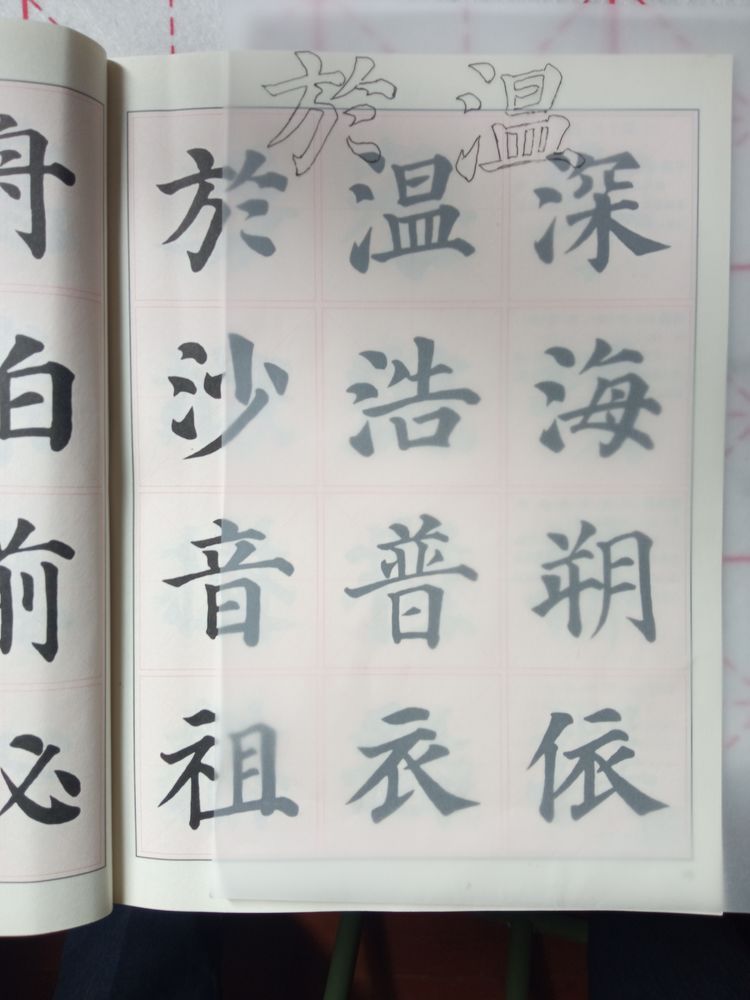 於温
於温深
沙浩海
音普朔
祖衣依
舟
白
前
必